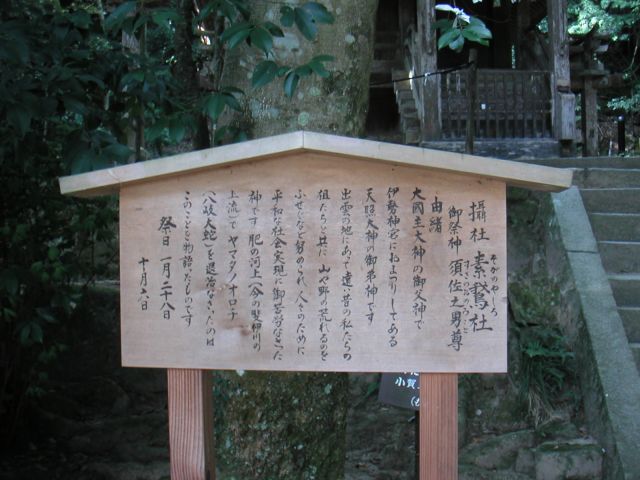 攝社 素鵞社
そがのやしろ
御祭神 須佐之男尊
すさのおのみこと
由緒
大國主大神の御父神で
伊勢神宮におまつりしてある
天照大神の御弟神です
出雲の地にあって遠い昔の私たちの
祖たちと共に 山や野の荒れるのを
ふせぐなど努められ 人々のために
平和な社会実現に御苦労なさった
神です 肥の河上(今の斐伊川の
上流)で ヤマタノオロチ
(八岐大蛇)を退治なさいたのは
このことを物語ったものです
祭日 一月二十八日
十月六日
小賀